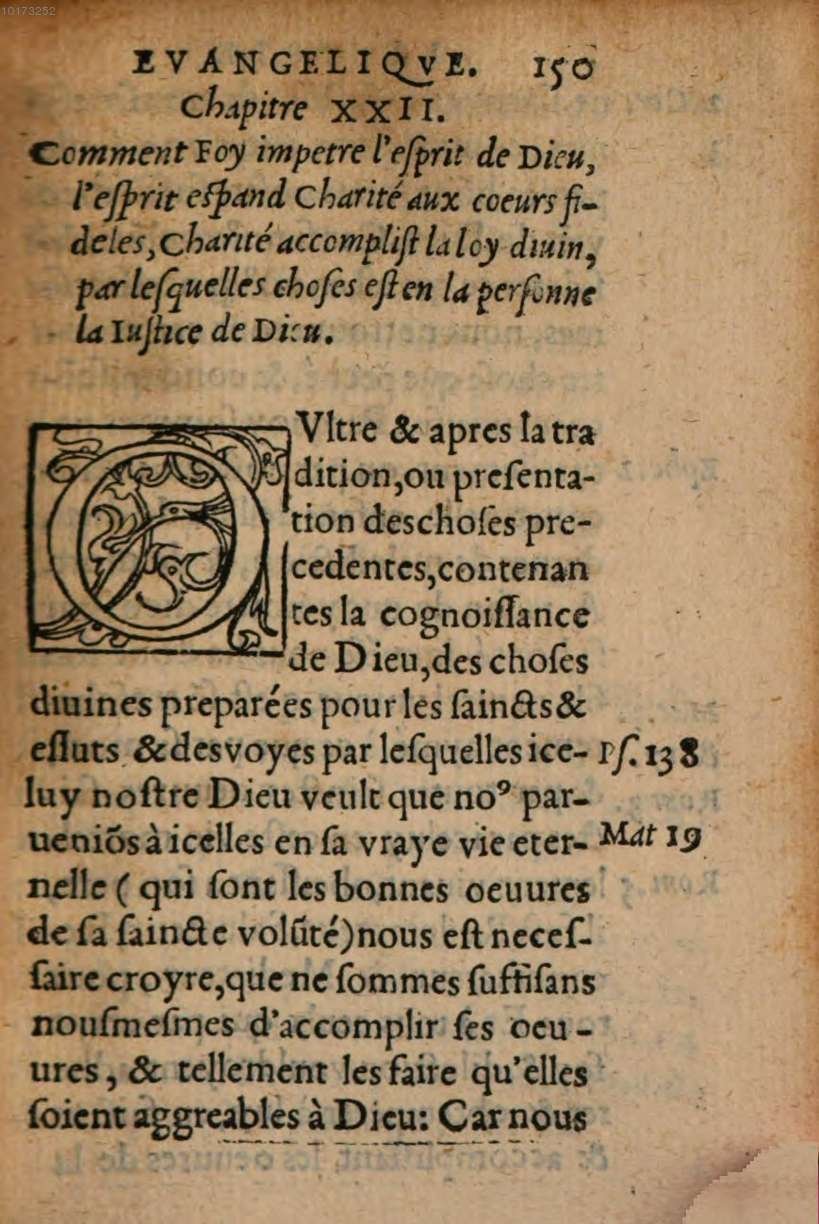 10173252
EVANGELIQVE. 150
Chapitre XXII.
Comment Foy impetre l'eſprit de Dieu,
l'eſprit eſpand Charité aux coeurs fi-
deles, Charité accompliſt la loy diuin,
par leſquelles choſes eſt en la perſonne
la Iuſtice de Dieu.
OVltre & apres la tra
dition, ou preſenta-
tion des choſes pre-
cedentes, contenan
tes la cognoiſſance
de Dieu, des choſes
diuines preparées pour les ſaincts &
eſluts & des voyes par leſquelles ice- Pſ. 138
luy noſtre Dieu veult que noꝰ par-
ueniõs à icelles en ſa vraye vie eter- Mat 19
nelle ( qui ſont les bonnes oeuures
de ſa ſaincte volũté) nous eſt neceſ-
ſaire croyre, que ne ſommes ſuffiſans
nouſmeſmes d'accomplir ſes oeu-
ures, & tellement les faire qu'elles
ſoient aggreables à Dieu: Car nous